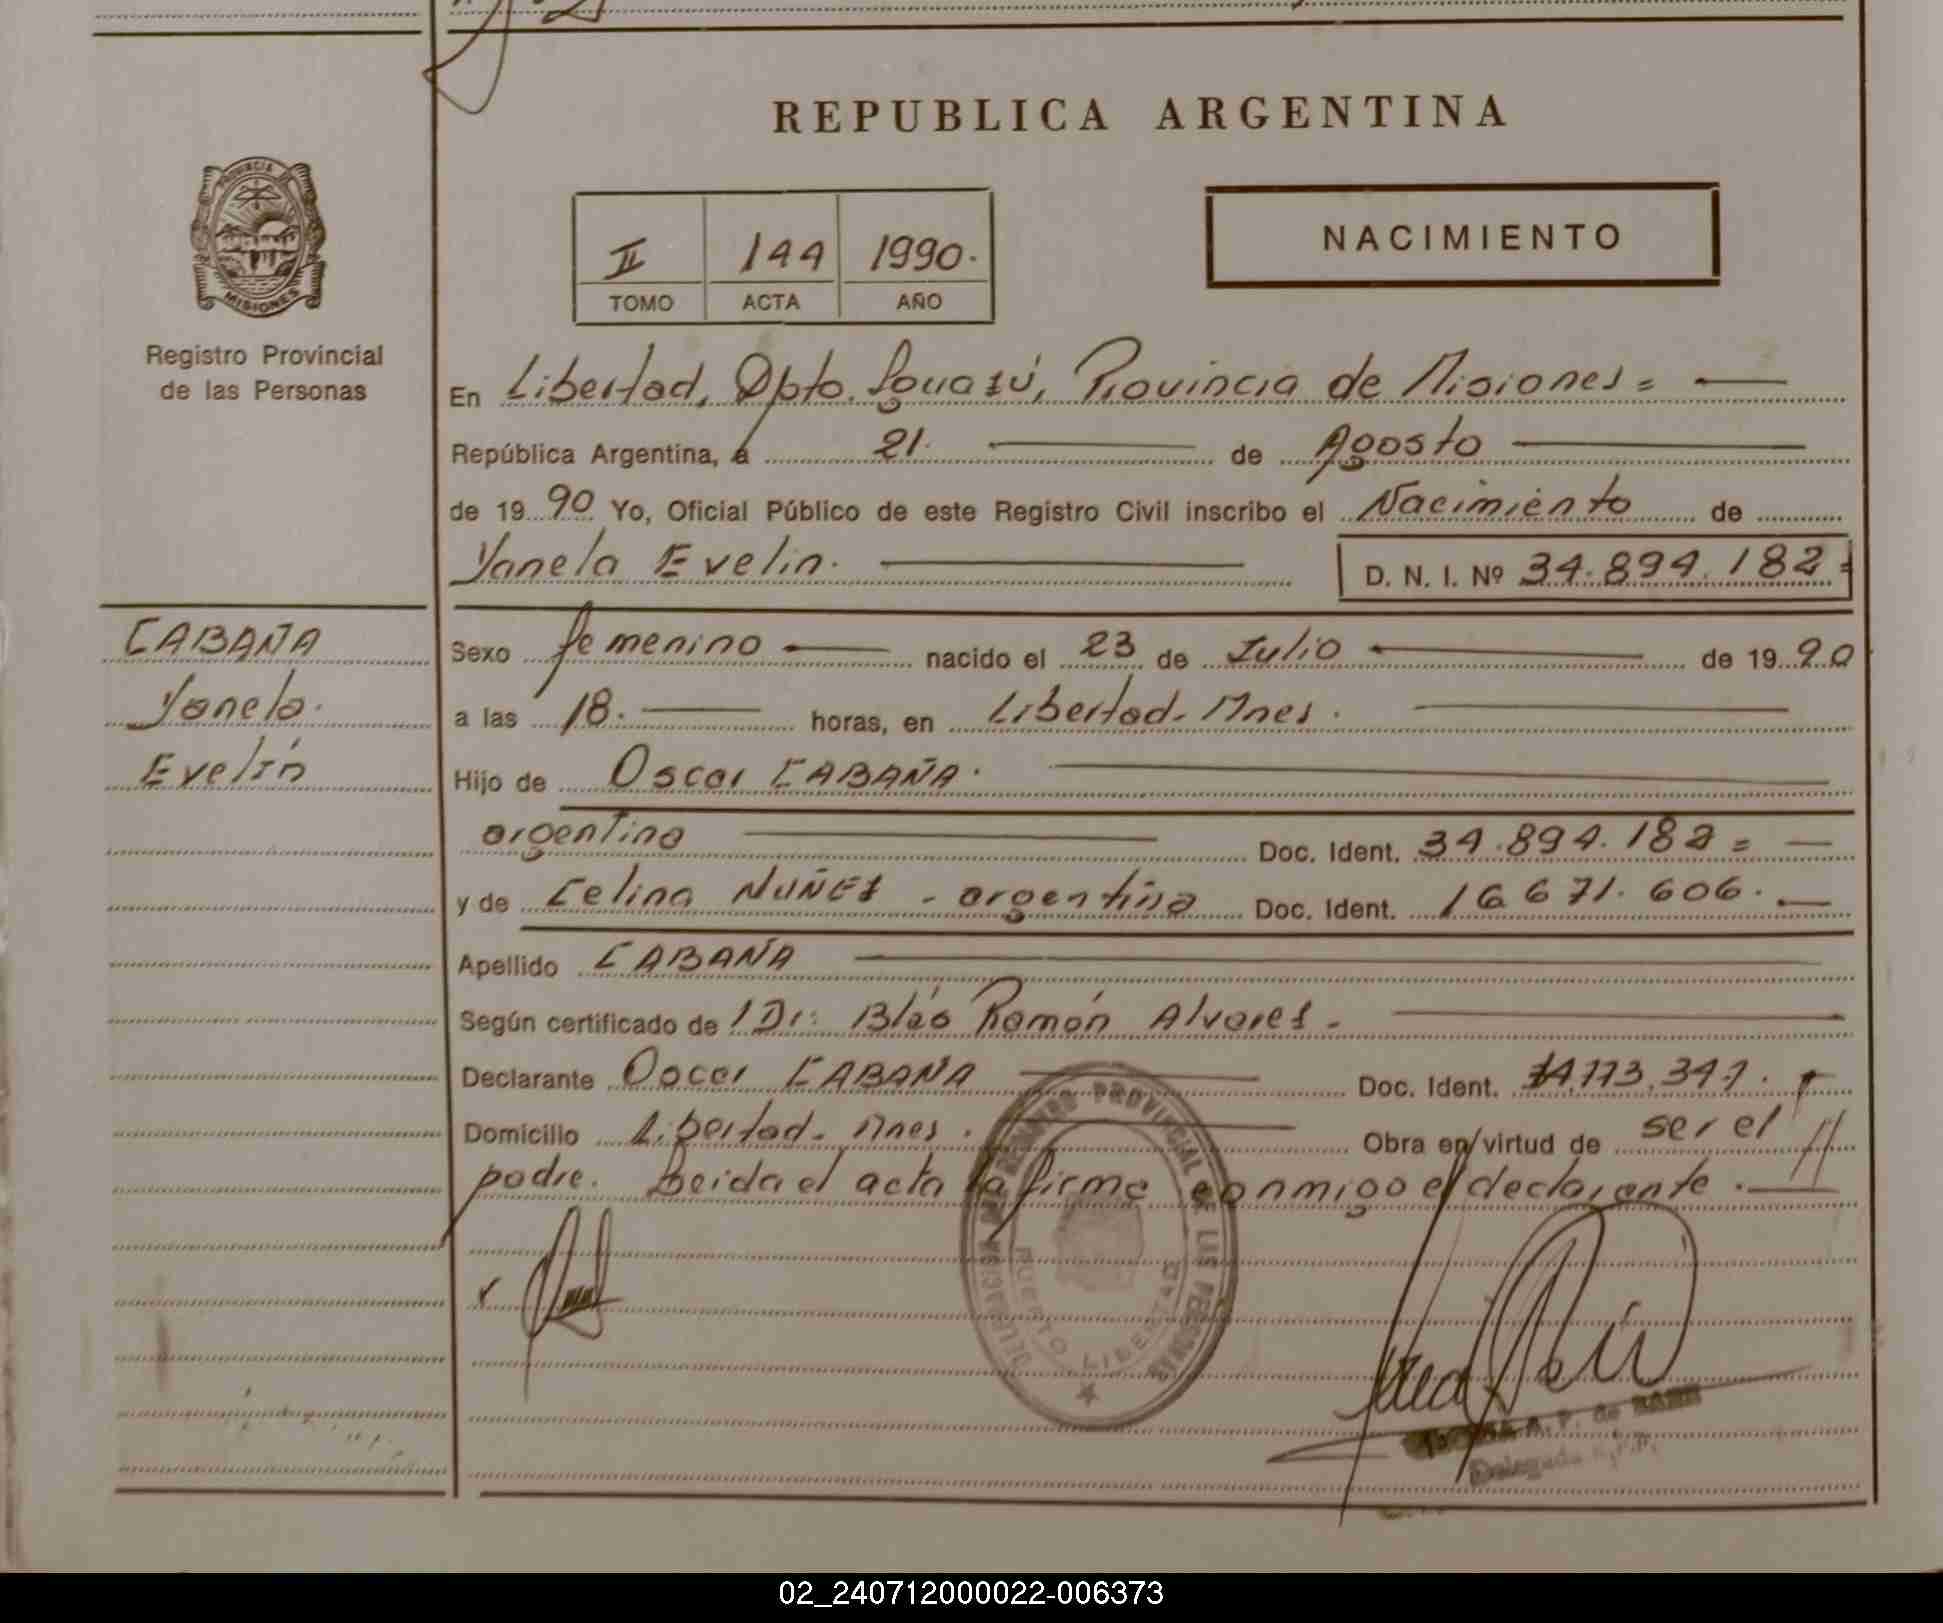 REPUBLICA ARGENTINA
PROVINCIA
MISIONES
Registro Provincial
de las Personas
II 144 1990.
TOMO ACTA AÑO
NACIMIENTO
En Libertad, Dpto. Iguazú, Provincia de Misiones =
República Argentina, a 21. de Agosto
de 1990 Yo, Oficial Público de este Registro Civil inscribo el Nacimiento de
Yanela Evelin. D. N. I. Nº 34.894.182=
CABAÑA
Yanela.
Evelín
Sexo femenino nacido el 23 de Julio de 1990
a las 18. horas, en Libertad. Mnes.
Hijo de Oscar CABAÑA.
argentino Doc. Ident. 34.894.182 =
y de Celina NUÑEZ - argentina Doc. Ident. 16.671.606.
Apellido CABAÑA
Según certificado de l Dr: Blás Ramón Alvarez -
Declarante Oscar CABAÑA Doc. Ident.
Domicilio Libertad. Mnes. Obra en virtud de ser el
padre. Leida el acta la firma conmigo el declarante.
REGISTRO PROVINCIAL DE LAS PERSONAS
PUERTO LIBERTAD
A. P. de
Delegada
02_240712000022-006373